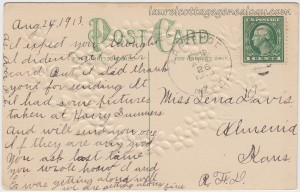 laurelcottagegenealogy.com
Aug 24, 1913.
POST CARD
I expect you thought
I didn't get your
card But I did thank
you for sending it
it had some pictures
taken at Harry Sumners
and will send you one
if they are any good
You ask last time
you wrote how I and
was getting along well
we are getting along fine
1 CENT 1
Miss Lena Davis.
Almena
Kans
R.F.D.